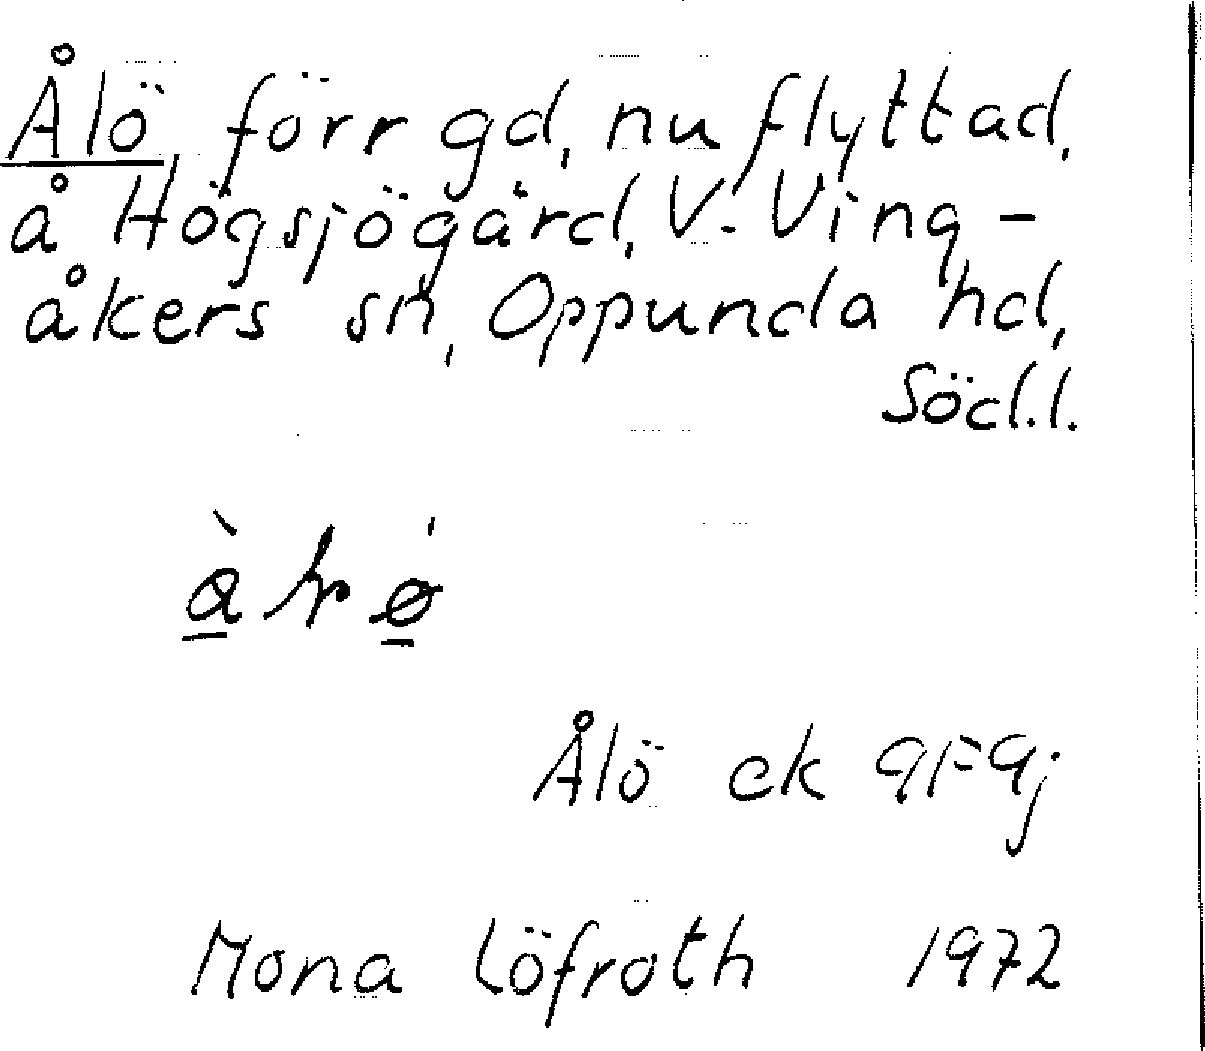 Ålö, förr gd, nu flyttad,
å Högsjögård, V. Ving-
åkers sn, Oppunda hd,
Södl.l.
Ålö ek 9F9j
Mona Löfroth 1972